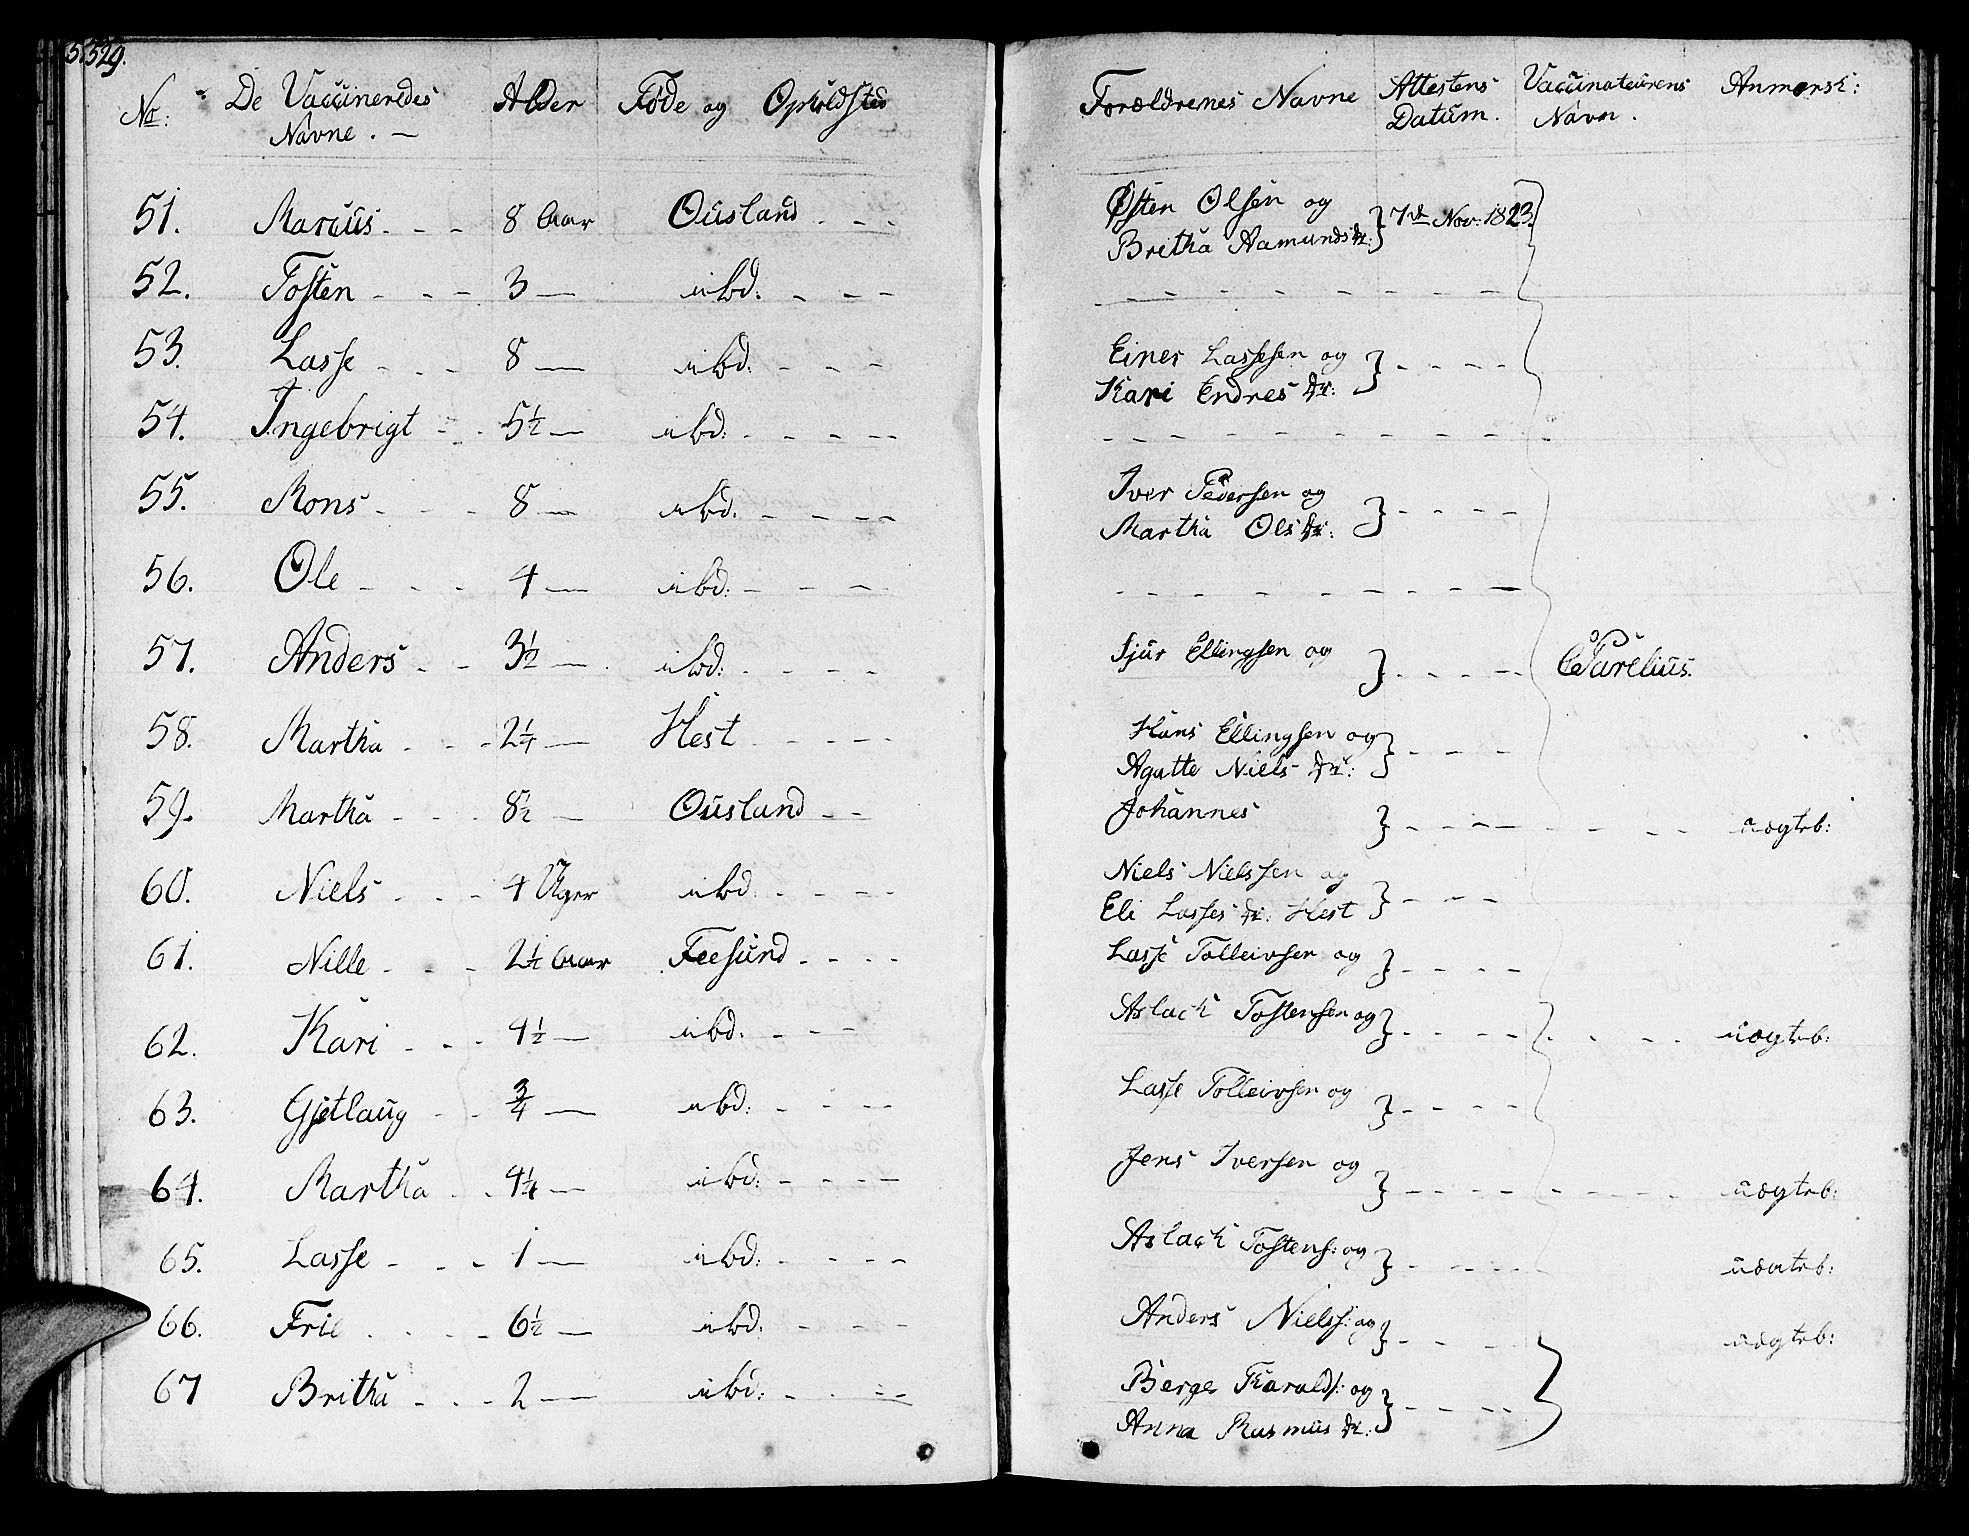 529.
No: De Vaccineredes Navne. — Alder Føde og Opholdsted Forældrenes Navne Attestens Datum. Vaccinateurens Navn. Anmærk:
51. Marcus - - - 8 Aar Ousland - - - Østen Olsen og Britha Aamunds dr: } 7de Nov: 1823.
52. Tosten - - - 3 — ibd. - - -
53. Lasse - - - 8 — ibd: - - - Einer Lassesen og Kari Endres dr: } - - - -
54. Ingebrigt - - 5½ — ibd: - - - -
55. Mons - - - 8 — ibd. - - - - Iver Pedersen og Martha Ols dr: } - - - -
56. Ole - - - 4 — ibd: - - -
57. Anders - - 3½ — ibd: - - - - Sjur Ellingsen og } - - - - Aarelius.
58. Martha - - - 2¼ — Hest - - - - Hans Ellingsen og Agatte Niels dr: } - - - -
59. Martha - - - 8½ — Ousland - - Johannes } - - - - - - - uægteb:
60. Niels - - - 4 Uger ibd. - - - - Niels Nielssen og Eli Lasses dr: Hest } - - -
61. Nille - - - 2½ Aar Feesund - - - - Lasse Tolleivsen og } - - - -
62. Kari - - - 4½ — ibd: - - - Aslach Tostensen og } - - - - - - - - uægteb:
63. Gjetlaug - - ¾ — ibd: - - - Lasse Tolleivsen og } - - - -
64. Martha - - 4¼ — ibd: - - - - Jens Iversen og } - - - - - - - - uægteb:
65. Lasse - - - 1 — ibd: - - - - Aslach Tostens: og } - - - - uægteb:
66. Fri - - - - 6½ — ibd: - - - Anders Nielss: og } - - - uægteb:
67 Britha - - - 2 — ibd: - - - - Berge Haralds: og Anna Rasmus dr: } - - - -